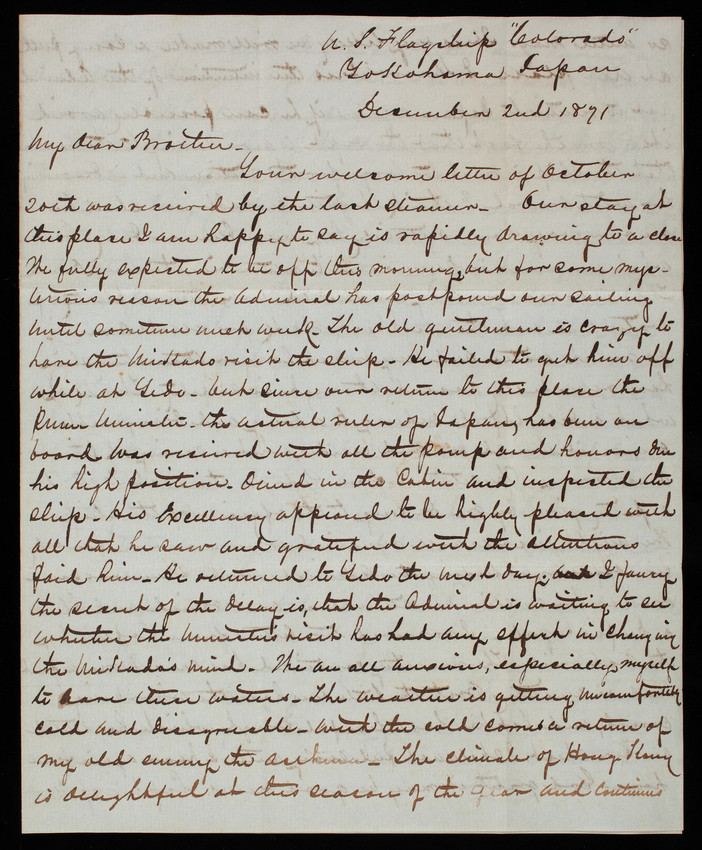 U. S. Flagship "Colorado"
Yokohama Japan
December 2nd 1871
My Dear Brother -
Your welcome letter of October
20th was received by the last steamer - Our stay at
this place I am happy to say is rapidly drawing to a close
We fully expected to be off this morning, but for some mys-
terious reason the Admiral has postponed our sailing
until sometime next week - The old gentleman is crazy to
have the Mickado visit the ship - He failed to get him off
while at Yedo - but since our return to this place the
Prime Minister - the actual ruler of Japan, has been on
board was received with all the pomp and honors due
his high position - Dined in the Cabin and inspected the
ship - His Excellency appeared to be highly pleased with
all that he saw and gratified with the attentions
paid him - He returned to Yedo the next day. I fancy
the secret of the delay is, that the Admiral is waiting to see
whether the Minister's visit has had any effect in changing
the Mickado's mind - We are all anxious, especially myself
to leave these waters - The weather is getting uncomfortably
cold and disagreeable - with the cold comes a return of
my old enemy the asthma - The climate of Hong Kong
is delightful at this season of the year and continues